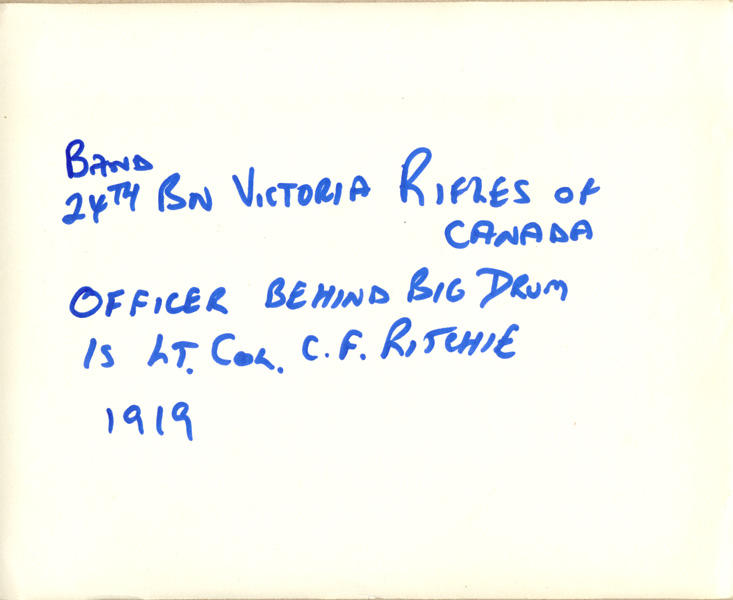 BAND
24TH BN VICTORIA RIFLES OF
CANADA
OFFICER BEHIND BIG DRUM
IS LT. COL. C.F. RITCHIE
1919